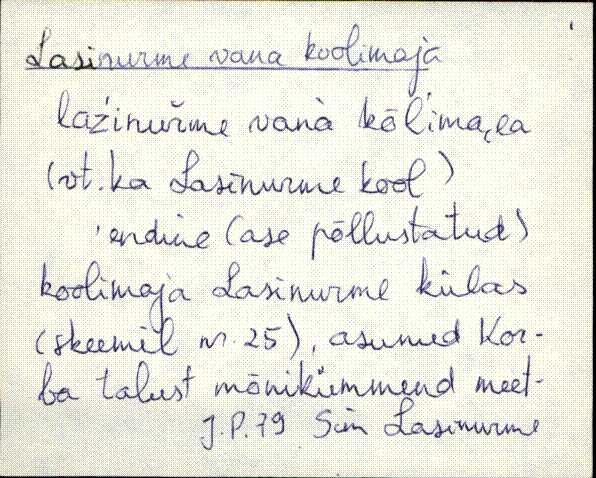 Lasinurme vana koolimaja
laźinuřme vanà kōĺima͔ea
(vt. ka Lasinurme kool)
'endine (ase põllustatud)
koolimaja Lasinurme külas
(skeemil nr. 25), asunud Kor-
ba talust mõnikümmend meet-
J.P.79 Sim Lasinurme